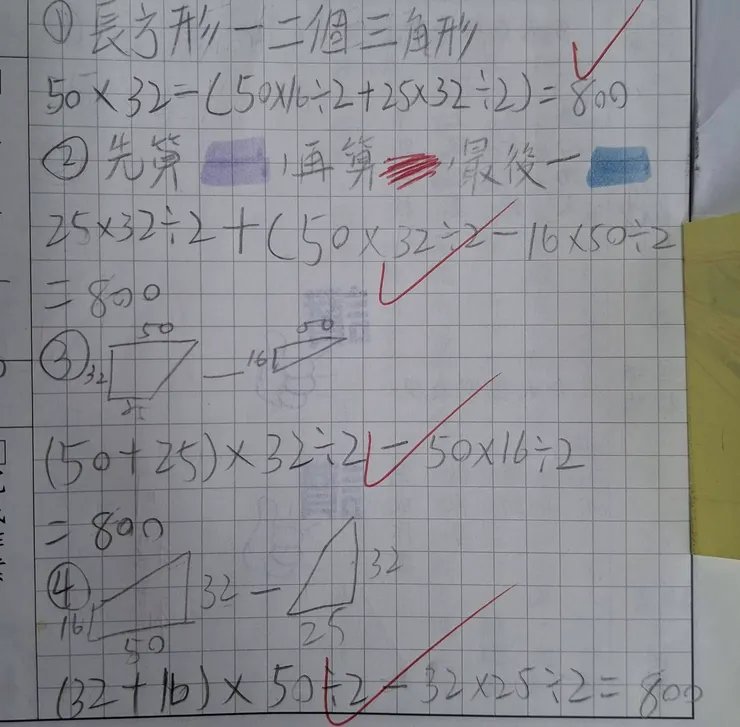 ① 長方形一二個三角形
50×32-(50×16÷2+25×32÷2)=800
② 先算 ,再算 ,最後一
25×32÷2+(50×32÷2-16×50÷2
=800
50 50
③ 32 — 16
25
(50+25)×32÷2-50×16÷2
=800
④ 32 — 32
16
50 25
(32+16)×50÷2-32×25÷2=800